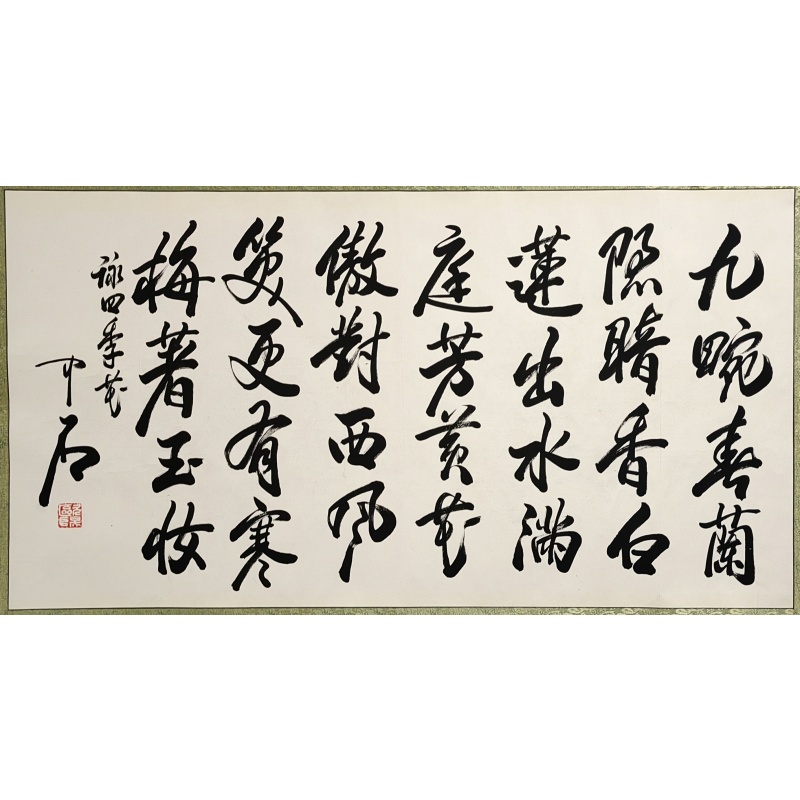 九畹春蘭
隐暗香白
蓮出水满
庭芳黄花
傲對西风
笑更有寒
梅著玉妆
詠四季花
中石